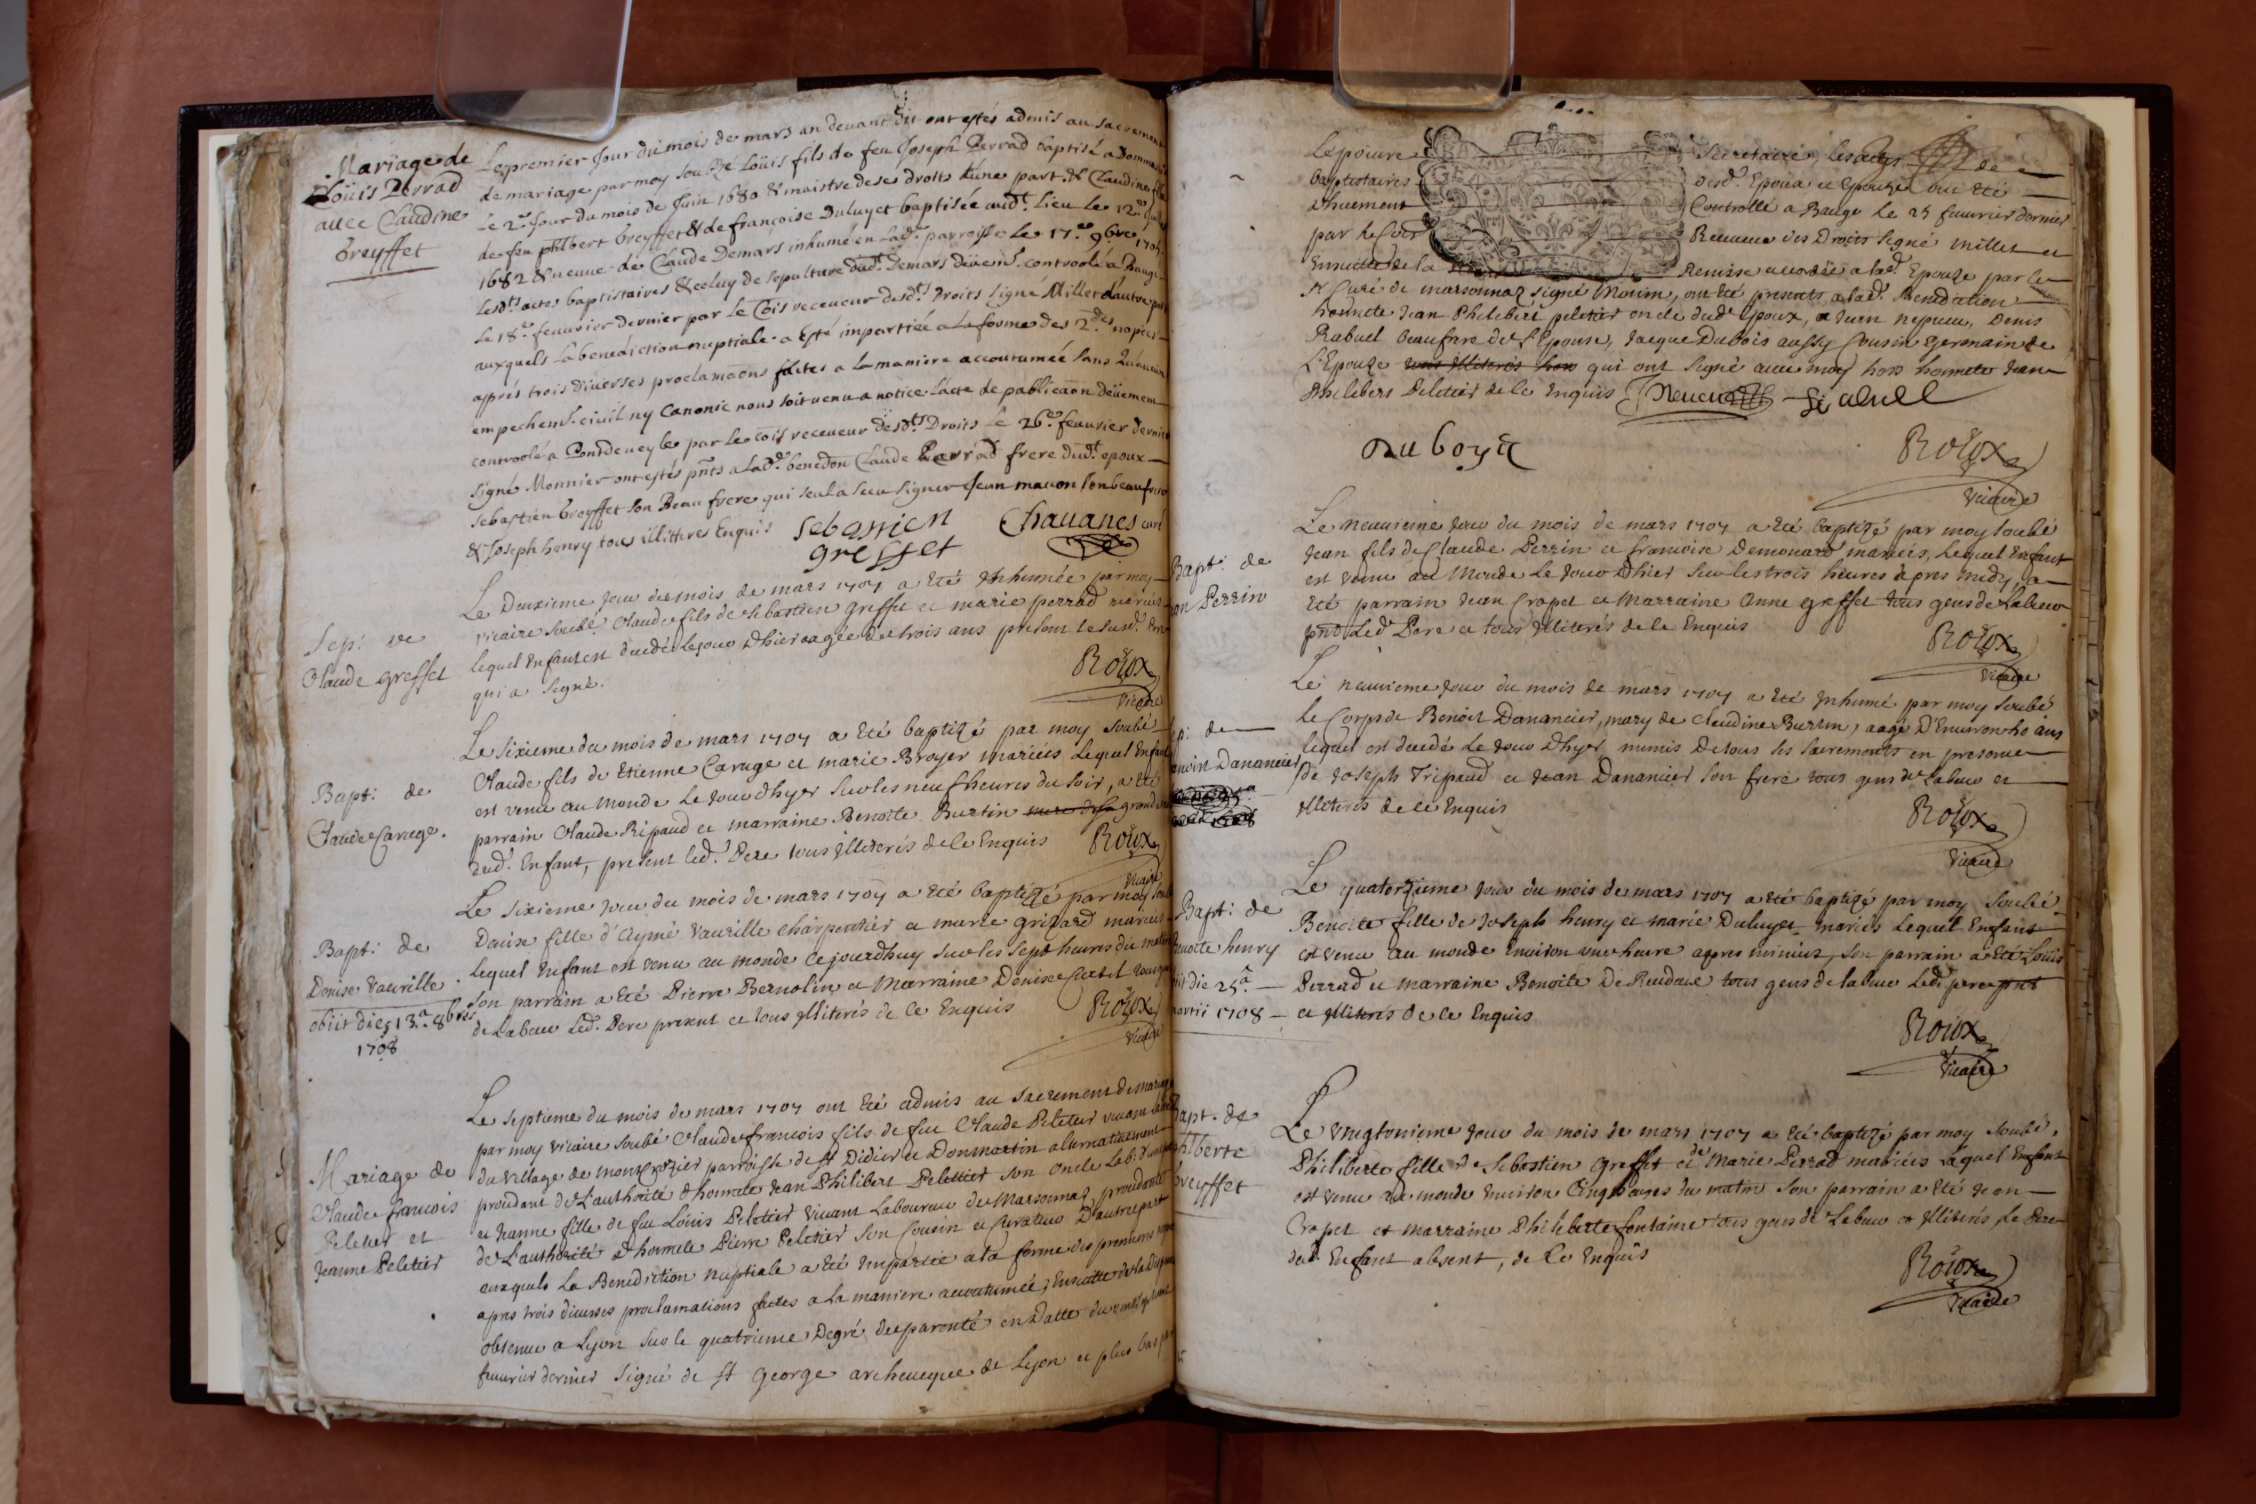 Mariage de
Loüis Perrad
auec Claudine
breyffet
Le premier Jour du mois de mars an deuant dit ont estés admis au sacrement
de mariage par moy soubzé Loüis fils de feu Joseph Perrad baptisé a Dommar
Le 2e Jour du mois de Juin 1680 & maistre de ses droits d'une part. & Claudine fille
de feu philbert breyffet & de françoise Duluyet baptisée audt. Lieu le 12e
1682 & veuue de Claude Demars inhumé en lade. parroisse le 17e 9bre
Lesdts actes baptistaires & celuy de sepulture dudt. Demars düemt. controolé a Baugé
Le 18e feuurier dernier par le Cois receueur desdts Droits signé Millet d'autre part
auxquels la benediction nuptiale a Esté impartiée a la forme des 2des nopces
aprés trois diuerses proclamaõns faittes a la maniere accoutumée sans qu'aucun
empechemt. ciuil ny Canonic nous soit venu a notice l'acte de publicaõn deüement
controolé a Pontdeueyle par le cois receueur desdts Droits le 26e feuurier dernier
signé Monnier ont estés pnts a lade. benedõn Claude Perrad frere dudt. epoux
sebastien breyffet son Beau frere qui seul a sceu signer Jean mauon son beaufrere
& Joseph henry tous illittres Enquis
sebastien
greffet
Chauanes curé
Sep: de
Claude greffet
Le Deuxieme jour du mois de mars 1707 a eté Inhumée par moy
vicaire soubé. Claude fils de sebastien greffet et marie perrad mariés
lequel enfant est decedé le jour d'hier aagée de trois ans present le susd. Pere
qui a signé.
Roux
vicaire
Bapt: de
Claude Caruge.
Le sixieme du mois de mars 1707 a eté baptizé par moy soubé
Claude fils de Etienne Caruge et marie Broyer mariés lequel Enfant
est venu au monde le jour d'hyer sur les neuf heures du soir, a eté
parrain Claude Ripaud et marraine Benoite Burtin grand
dud. Enfant, present led. Pere tous Illiterés de ce Enquis
Roux
vicaire
Bapt: de
Denise Vaurille.
obiit dies 13.a 8bris
1708
Le sixieme jour du mois de mars 1707 a eté baptizé par moy soubé
Denise fille d'Aymé Vaurille charpentier et marie grizard mariés
lequel Enfant est venu au monde ce jourdhuy sur les sept heures du matin
son parrain a eté Pierre Bernolin et Marraine Denise Catel tous gens
de labeur led. Pere present et tous Illiterés de ce Enquis
Roux
vicaire
Mariage de
Claude françois
Peletier et
Jeanne Peletier
Le septieme du mois de mars 1707 ont eté admis au sacrement de mariage
par moy vicaire soubé Claude françois fils de feu Claude Peletier viuant
du village de montcrozier parroisse de St Didier et Donmartin alternatiuement
procedant de L'authorité d'honnete Jean Philibert Pelettier son oncle
et Jeanne fille de feu Loüis Peletier viuant Laboureur de Marsonnaz procedante
de L'authorité d'honnete Pierre Peletier son Cousin et Curateur D'autre part
auxquels La Benediction nuptiale a eté impartiée a la forme des premieres nopces
apres trois diuerses proclamations faites a la maniere accoutumée, Ensuitte de la Dispense
obtenue a Lyon sur le quatrieme Degré de parenté en Datte du
feurier dernier signé de St George archeueque de Lyon et plus bas par
Le poure
baptistaires
anuement
par le Cois
Ensuitte de la
secretaire, les actes de
desd. Epoux et Epouze ont eté
Controllé a Baugé le 25 feuurier dernier
Receueur des Droits signé millet et
Remise accordée a lad. Epouze par le
Sr Curé de marsonnaz signé Monin, ont eté presents a lad. Benediction
honnete Jean Philibert peletier oncle dud. Epoux, a vurn nepueu, Denis
Rabuel beaufrere de l'Epouse, Jacque Dubois aussy Cousin germain de
L'Epouze qui ont signé auec moy hors honnete Jean
Philibert Peletier de ce Enquis
Rabuell
Duboys
Roux
vicaire
Bapt: de
an Perrin
Le neuuieme Jour du mois de mars 1707 a eté baptizé par moy soubé
Jean fils de Claude Perrin et francoise Demouard mariés, lequel Enfant
est venu au Monde le jour d'hier sur les trois heures apres midy, a
eté parrain Jean Cropet et Marraine Anne greffet tous gens de Labeur
pnt Led. Pere et tous Illiterés de ce Enquis
Roux
vicaire
p: de
enoin Danancier
Le neuuieme jour du mois de mars 1707 a eté Inhumé par moy soubé
le Corps de Benoit Danancier, mary de Claudine Burtin, aagé D'Enuiron 40 ans
lequel est decedé Le jour d'hyer munis De tous les sacrements en presence
de Joseph Tripaud et Jean Danancier son frere tous gens de Labeur et
Illiterés de ce Enquis
Roux
vicaire
Bapt: de
Benoite henry
iit die 25a
martii 1708
Le quatorzieme jour du mois de mars 1707 a eté baptizé par moy soubé
Benoite fille de Joseph henry et marie Duluyet mariés Lequel Enfant
est venu au monde Enuiron une heure apres minuit, son parrain a eté Loüis
Perrad et marraine Benoite De Rendale tous gens de labeur Led. pere pnt
et Illiterés de ce Enquis
Roux
vicaire
Bapt. de
philberte
breyffet
Le vingtonieme jour du mois de mars 1707 a eté baptizé par moy soubé.
Philiberte fille de Sebastien Greffet et de Marie Perrad mariés Laquel Enfant
est venu au monde Enuiron Cinq heures du matin son parrain a eté Jean
Cropet et Marraine Philiberte fontaine tous gens de Labeur et Illiterés le Pere
dud. Enfant absent, de ce Enquis
Roux
vicaire